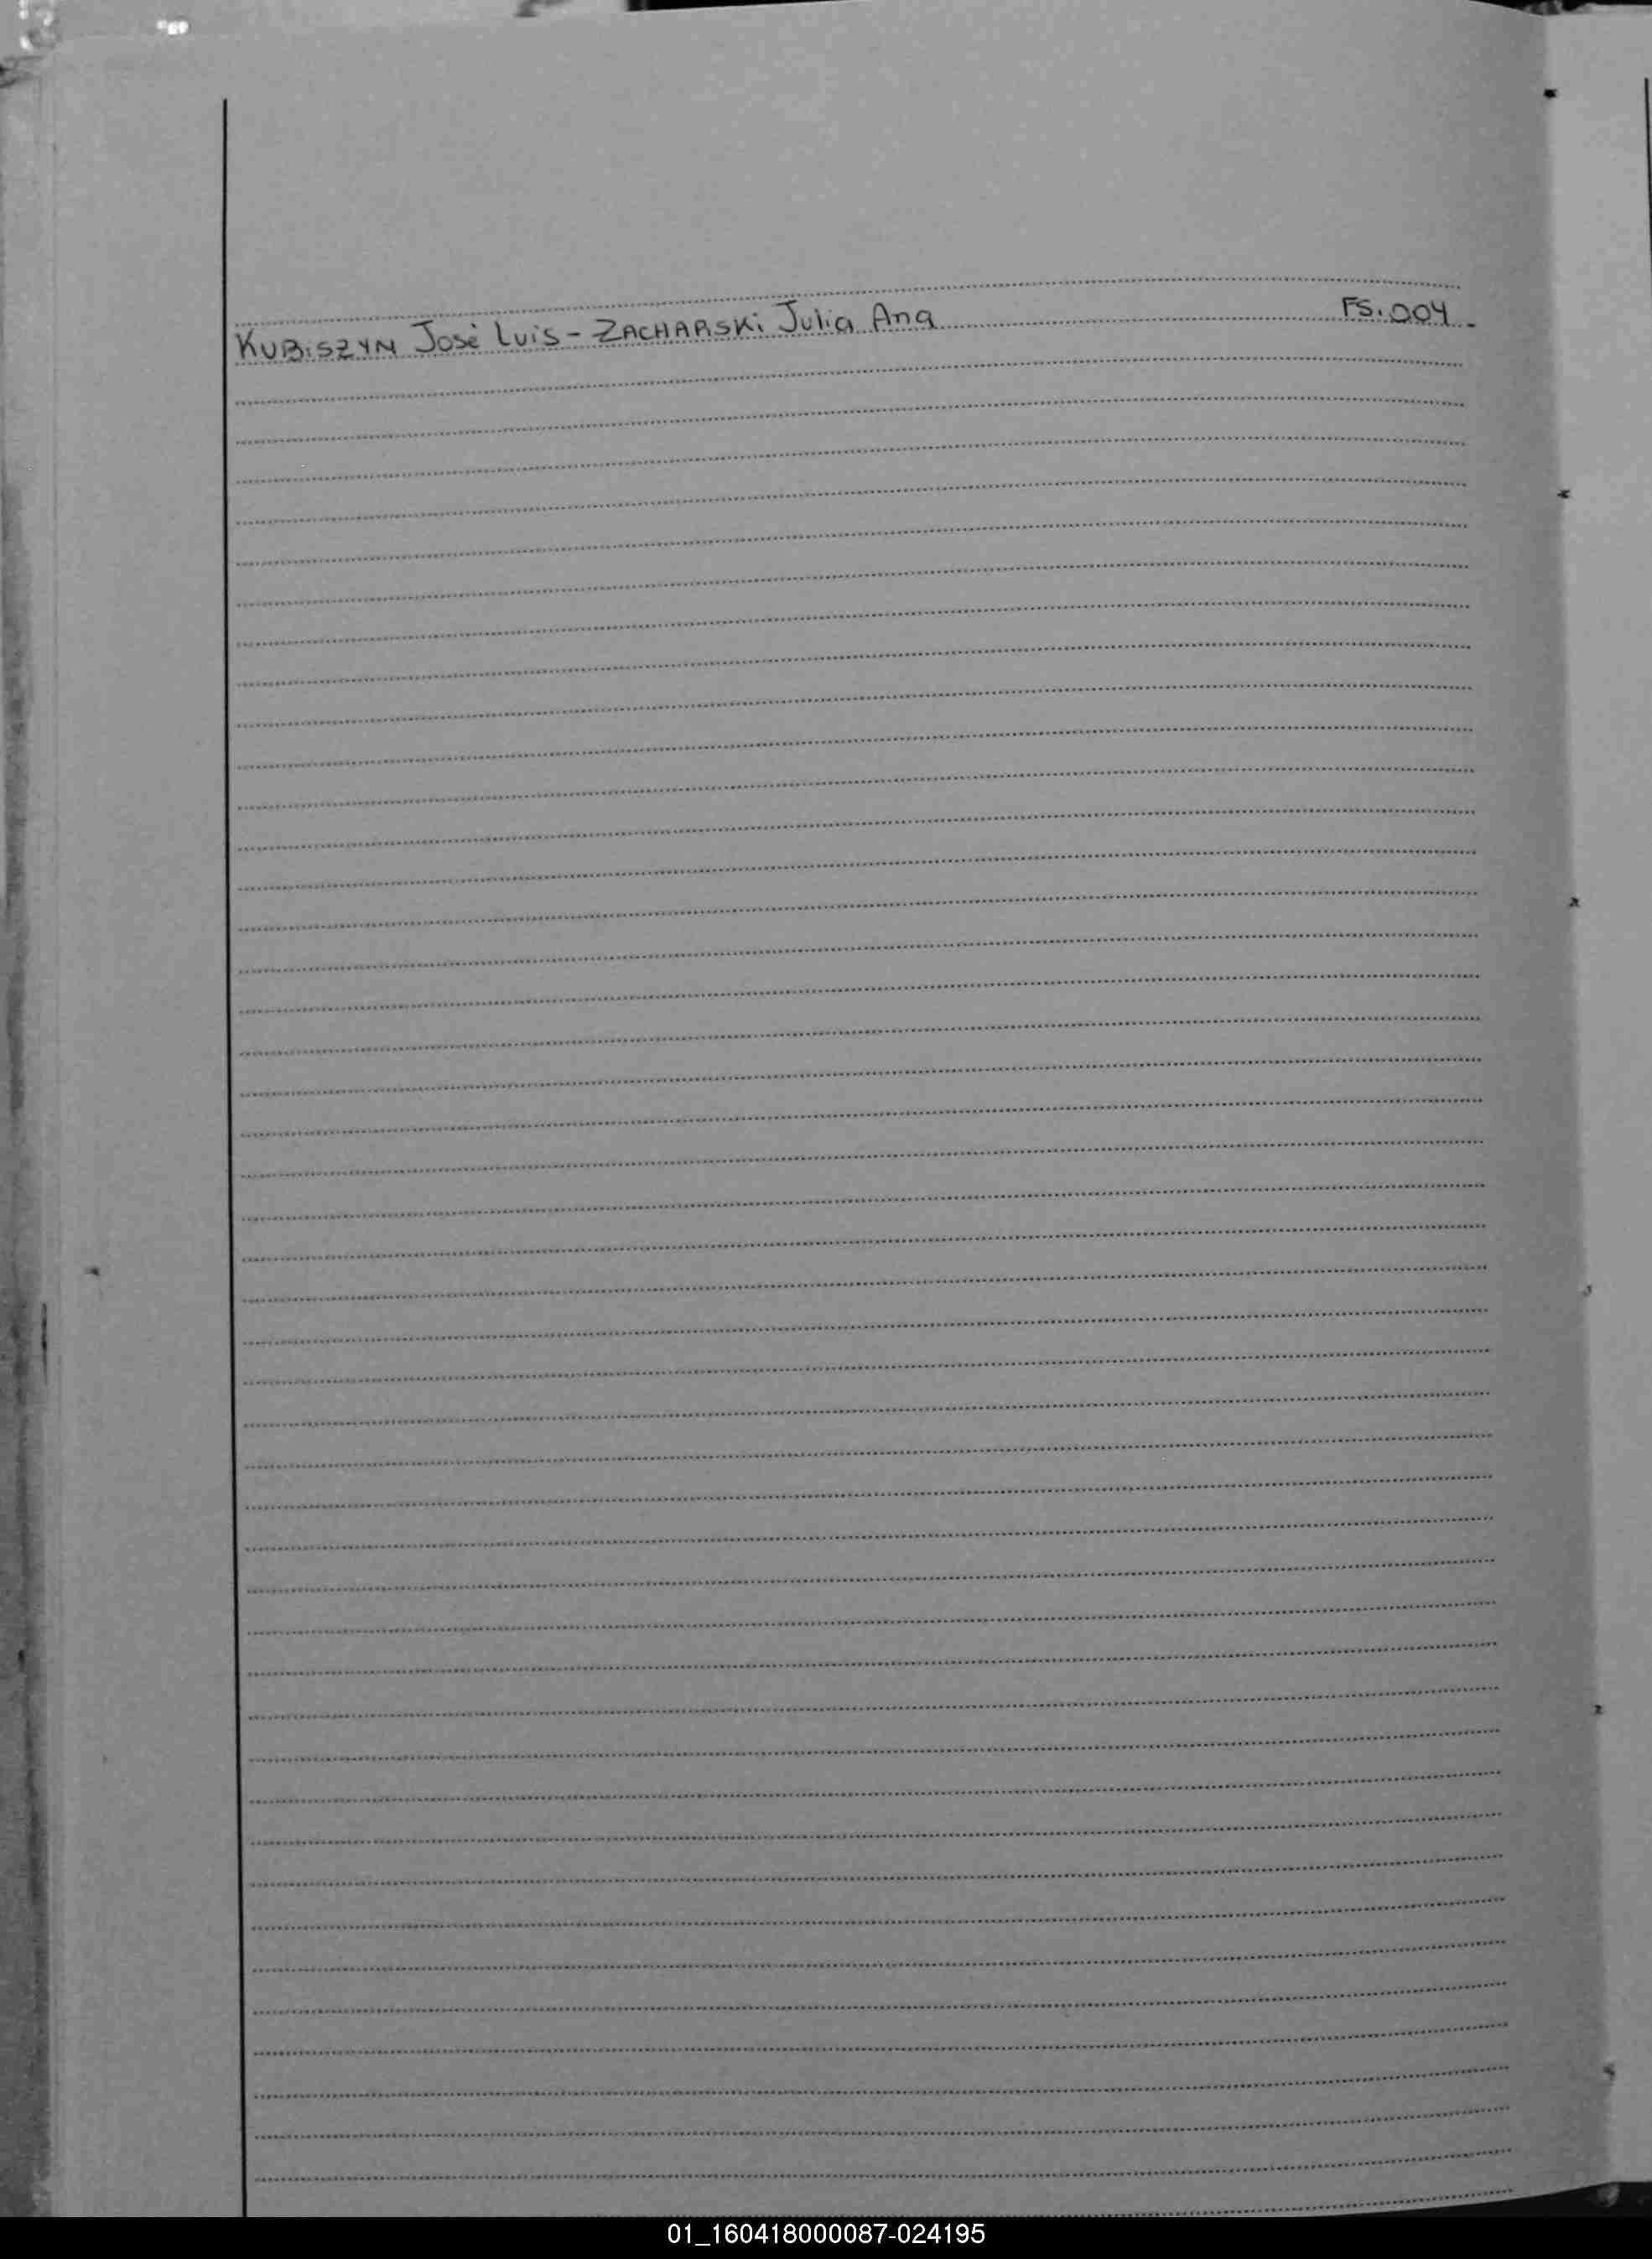 KUBiSZYN José Luis - ZACHARSKi Julia Ana FS. 004.
01_160418000087-024195